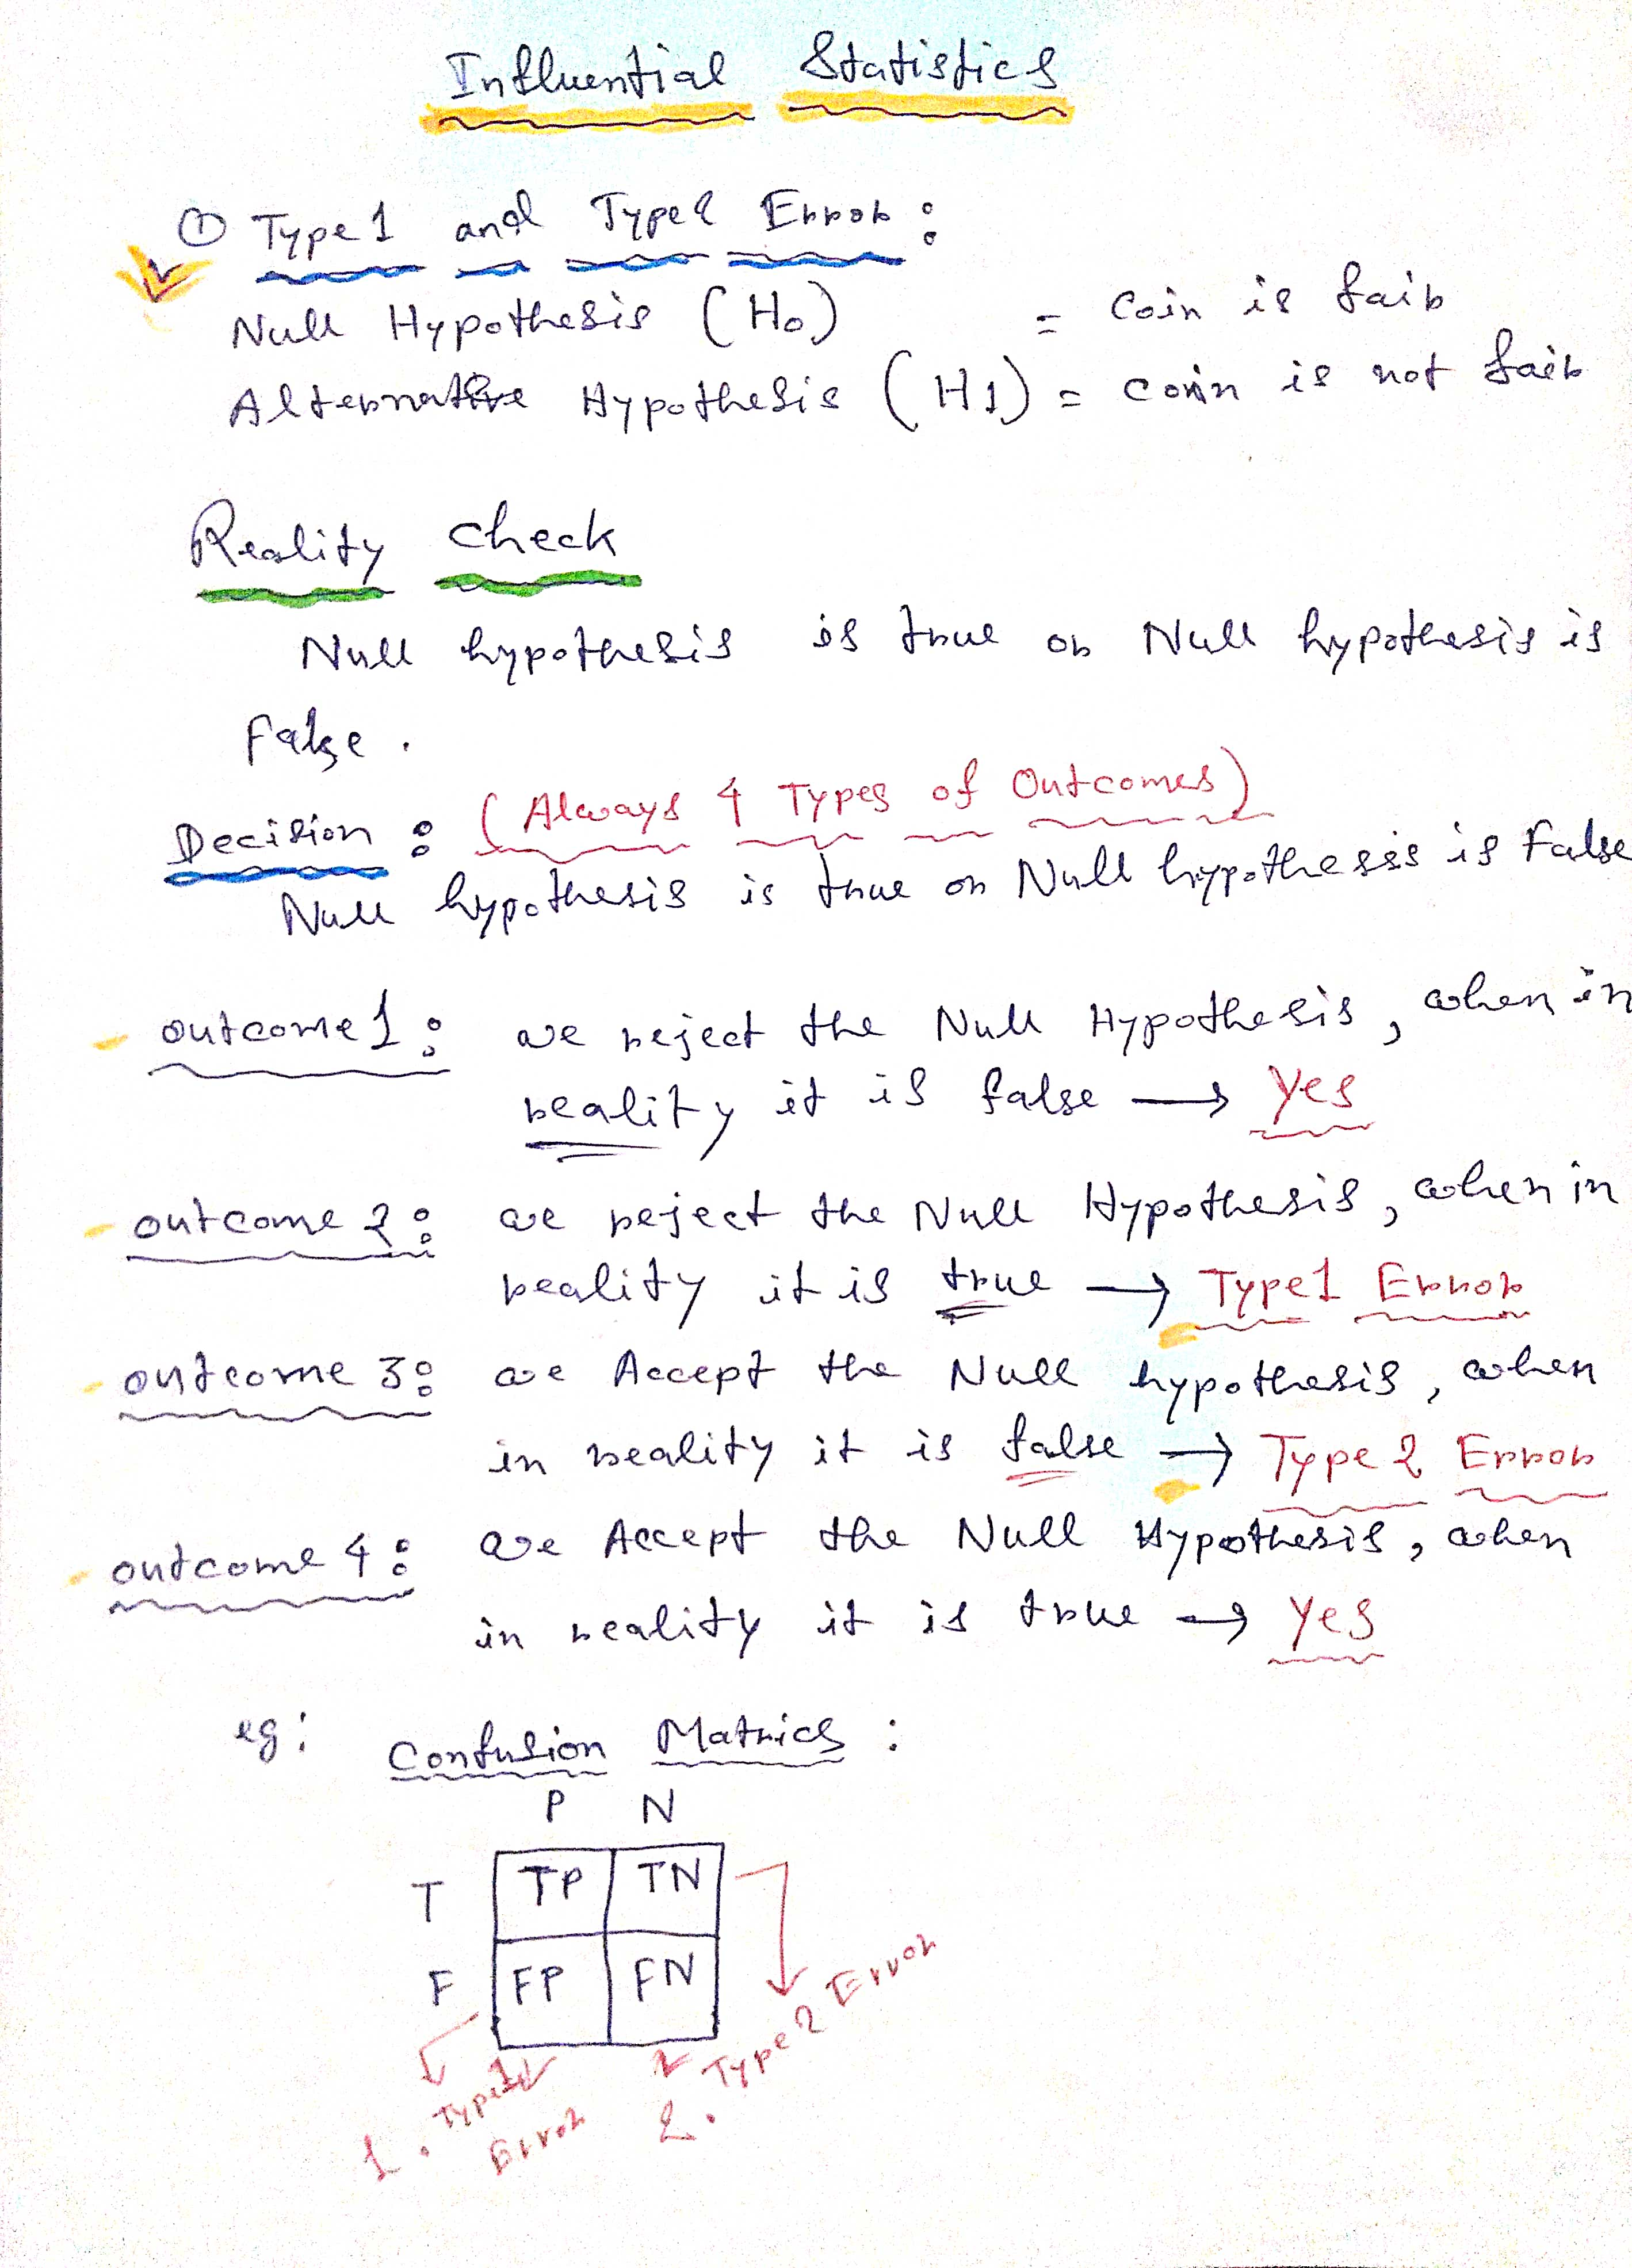 Influential Statistics
① Type 1 and Type 2 Error :
Null Hypothesis (H0) = Coin is fair
Alternative Hypothesis (H1) = Coin is not fair
Reality Check
Null hypothesis is true or Null hypothesis is
False .
Decision : (Always 4 Types of Outcomes)
Null hypothesis is true or Null hypothesis is False
- outcome 1 : we reject the Null Hypothesis, when in
reality it is false → Yes
- outcome 2 : we reject the Null Hypothesis, when in
reality it is true → Type 1 Error
- outcome 3 : we Accept the Null hypothesis, when
in reality it is false → Type 2 Error
- outcome 4 : we Accept the Null Hypothesis, when
in reality it is true → Yes
eg : Confusion Matrics :
P N
T TP TN
F FP FN
1. Type 1 Error
2. Type 2 Error